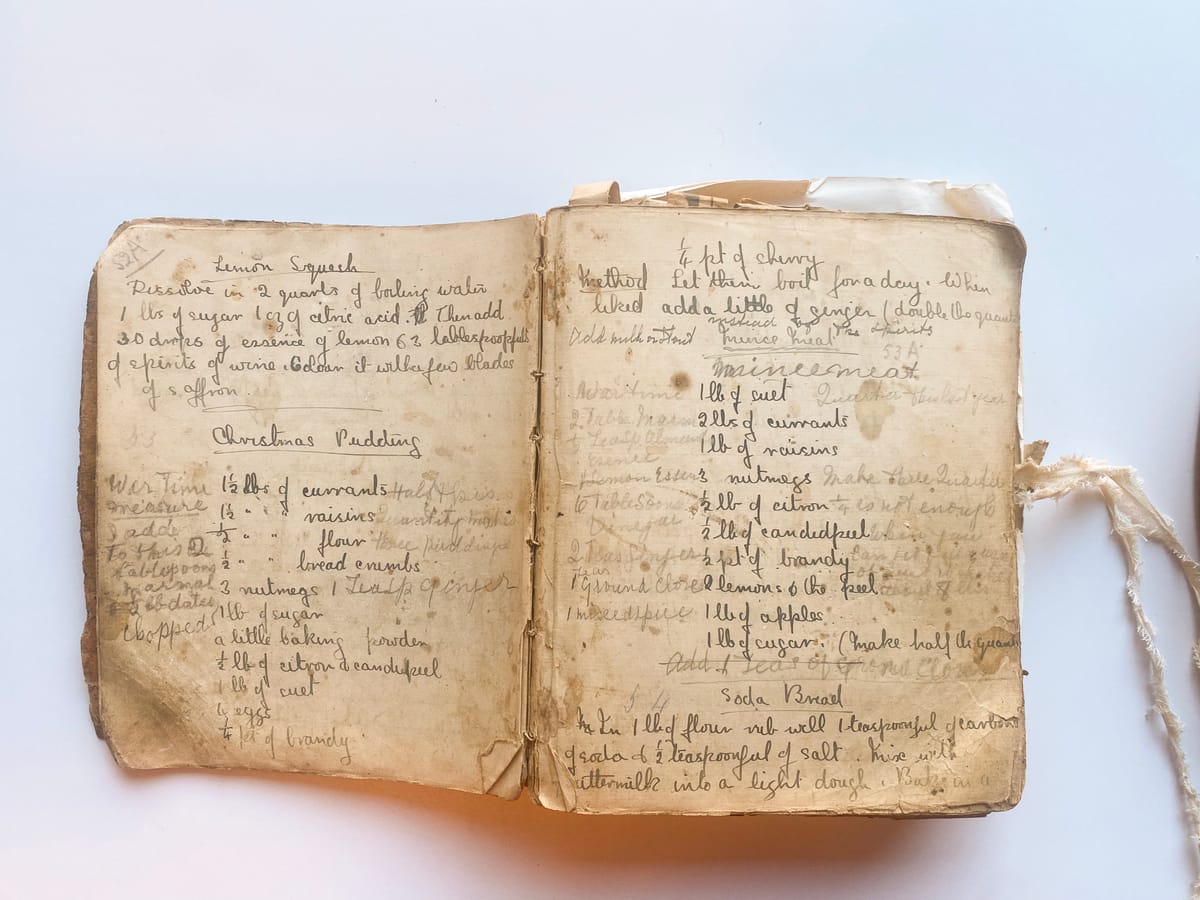 52A
Lemon Squash
Dissolve in 2 quarts of boiling water
1 lbs of sugar 1 oz of citric acid. Then add
30 drops of essence of lemon & 3 tablespoonfuls
of spirits of wine. Colour it with a few blades
of saffron.
53
Christmas Pudding
War Time
measure
I add
to this 2
tablespoons
marmal
dates
chopped
1½ lbs of currants Half this
1½ " " raisins quantity makes
½ " " flour three puddings
½ " " bread crumbs
3 nutmegs 1 Teasp ginger
1 lb of sugar
a little baking powder
½ lb of citron & candid peel
1 lb of suet
4 eggs
¼ pt of brandy
¼ pt of sherry
Method Let them boil for a day. When
liked add a little of ginger (double the quant
instead of the spirits
Add milk or stout Mince Meat
53A
Mincemeat
War time
2 Table Marm
Teasp Almond
Essence
Lemon Essen
6 Tablespoons
Vinegar
2 Teas ginger
1 Ground Clove
1 mixed spice
1 lb of suet Quarter this last year
2 lbs of currants
1 lb of raisins
3 nutmegs Make three Quarter
½ lb of citron ¼ is not enough
½ lb of candid peel when you
½ pt of brandy can get
2 lemons & the peel
1 lb of apples
1 lb of sugar. (Make half the quant
Add 1 Teas of Ground Clove
54
Soda Bread
In 1 lb of flour rub well 1 teaspoonful of carbon
of soda & ½ teaspoonful of salt. Mix with
uttermilk into a light dough. Bake in a